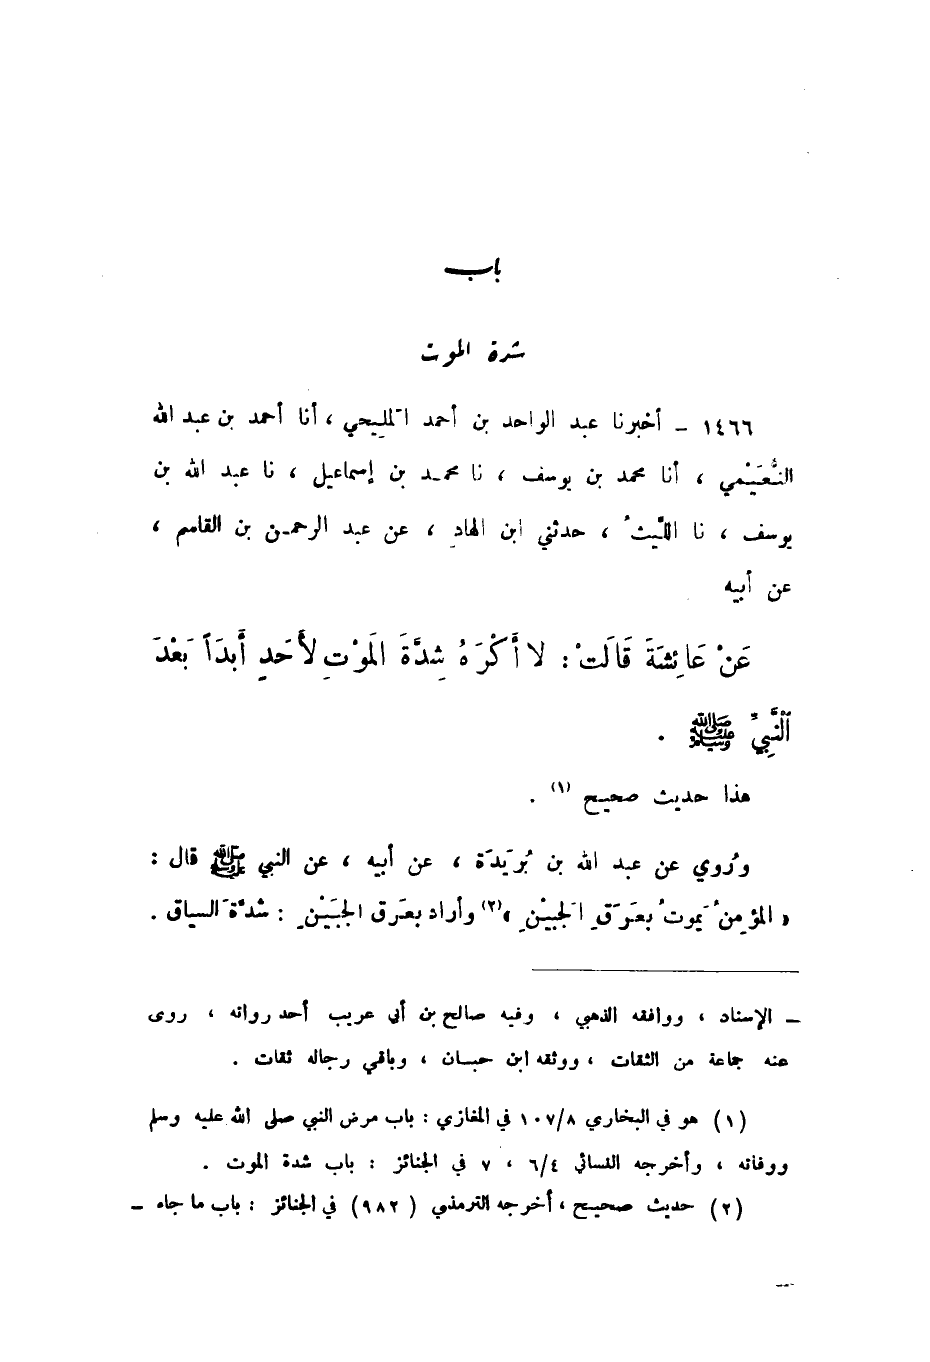 باب
شدة الموت
١٤٦٦ ـ أخبرنا عبد الواحد بن أحمد المَليحي ، أنا أحمد بن عبد الله
النُّعَيْمي ، أنا محمد بن يوسف ، نا محمد بن إسماعيل ، نا عبد الله بن
يوسف ، نا اللَّيثُ ، حدثني ابن الهادِ ، عن عبد الرحمن بن القاسم ،
عن أبيه
عَنْ عَائِشَةَ قَالَتْ : لا أَكْرَهُ شِدَّةَ المَوْتِ لأَحَدٍ أَبَدَاً بَعْدَ
النَّبِيِّ ﷺ .
هذا حديث صحيح (١) .
ورُوي عن عبد الله بن بُرَيدَة ، عن أبيه ، عن النبي ﷺ قال :
« المؤمِنُ يَموتُ بعَرَقِ الجَبيْنِ »(٢) وأراد بعَرق الجَبَيْنِ : شدَّةَ السياق .
ـ الإسناد ، ووافقه الذهبي ، وفيه صالح بن أبي عريب أحد رواته ، روى
عنه جماعة من الثقات ، ووثقه ابن حبان ، وباقي رجاله ثقات .
(١) هو في البخاري ١٠٧/٨ في المغازي : باب مرض النبي صلى الله عليه وسلم
ووفاته ، وأخرجه النسائي ٦/٤ ، ٧ في الجنائز : باب شدة الموت .
(٢) حديث صحيح ، أخرجه الترمذي ( ٩٨٢ ) في الجنائز : باب ما جاء ـ